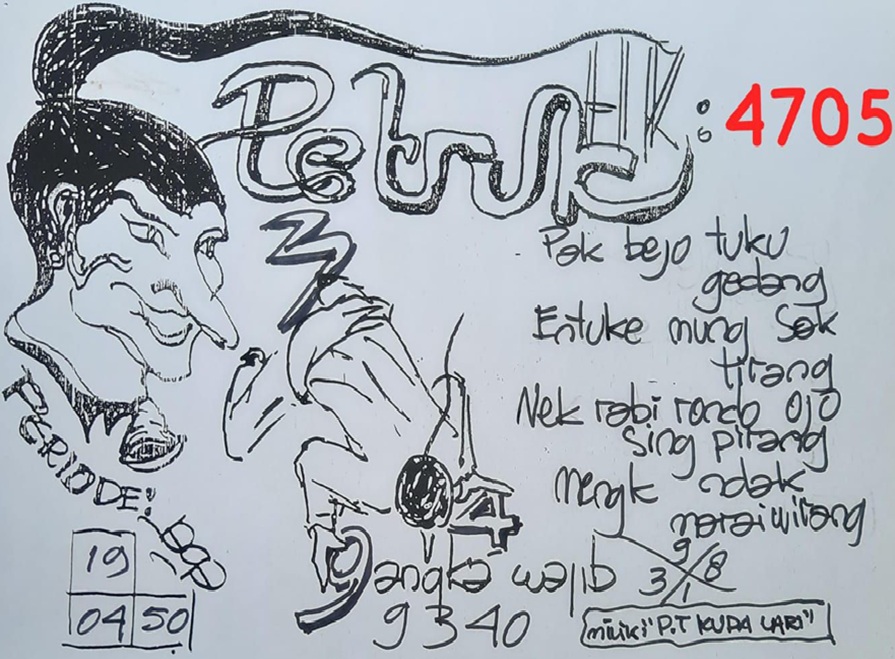 Petruk : 4705
Pak bejo tuku
gedang
Entuke mung sak
tirang
Nek rabi rondo ojo
sing pirang
mengk ndak
marai wirang
PERIODE:
19
04 50
3
4
9 angka wajib
9340
9 8
3 1
milik: "P.T KUDA LARI"